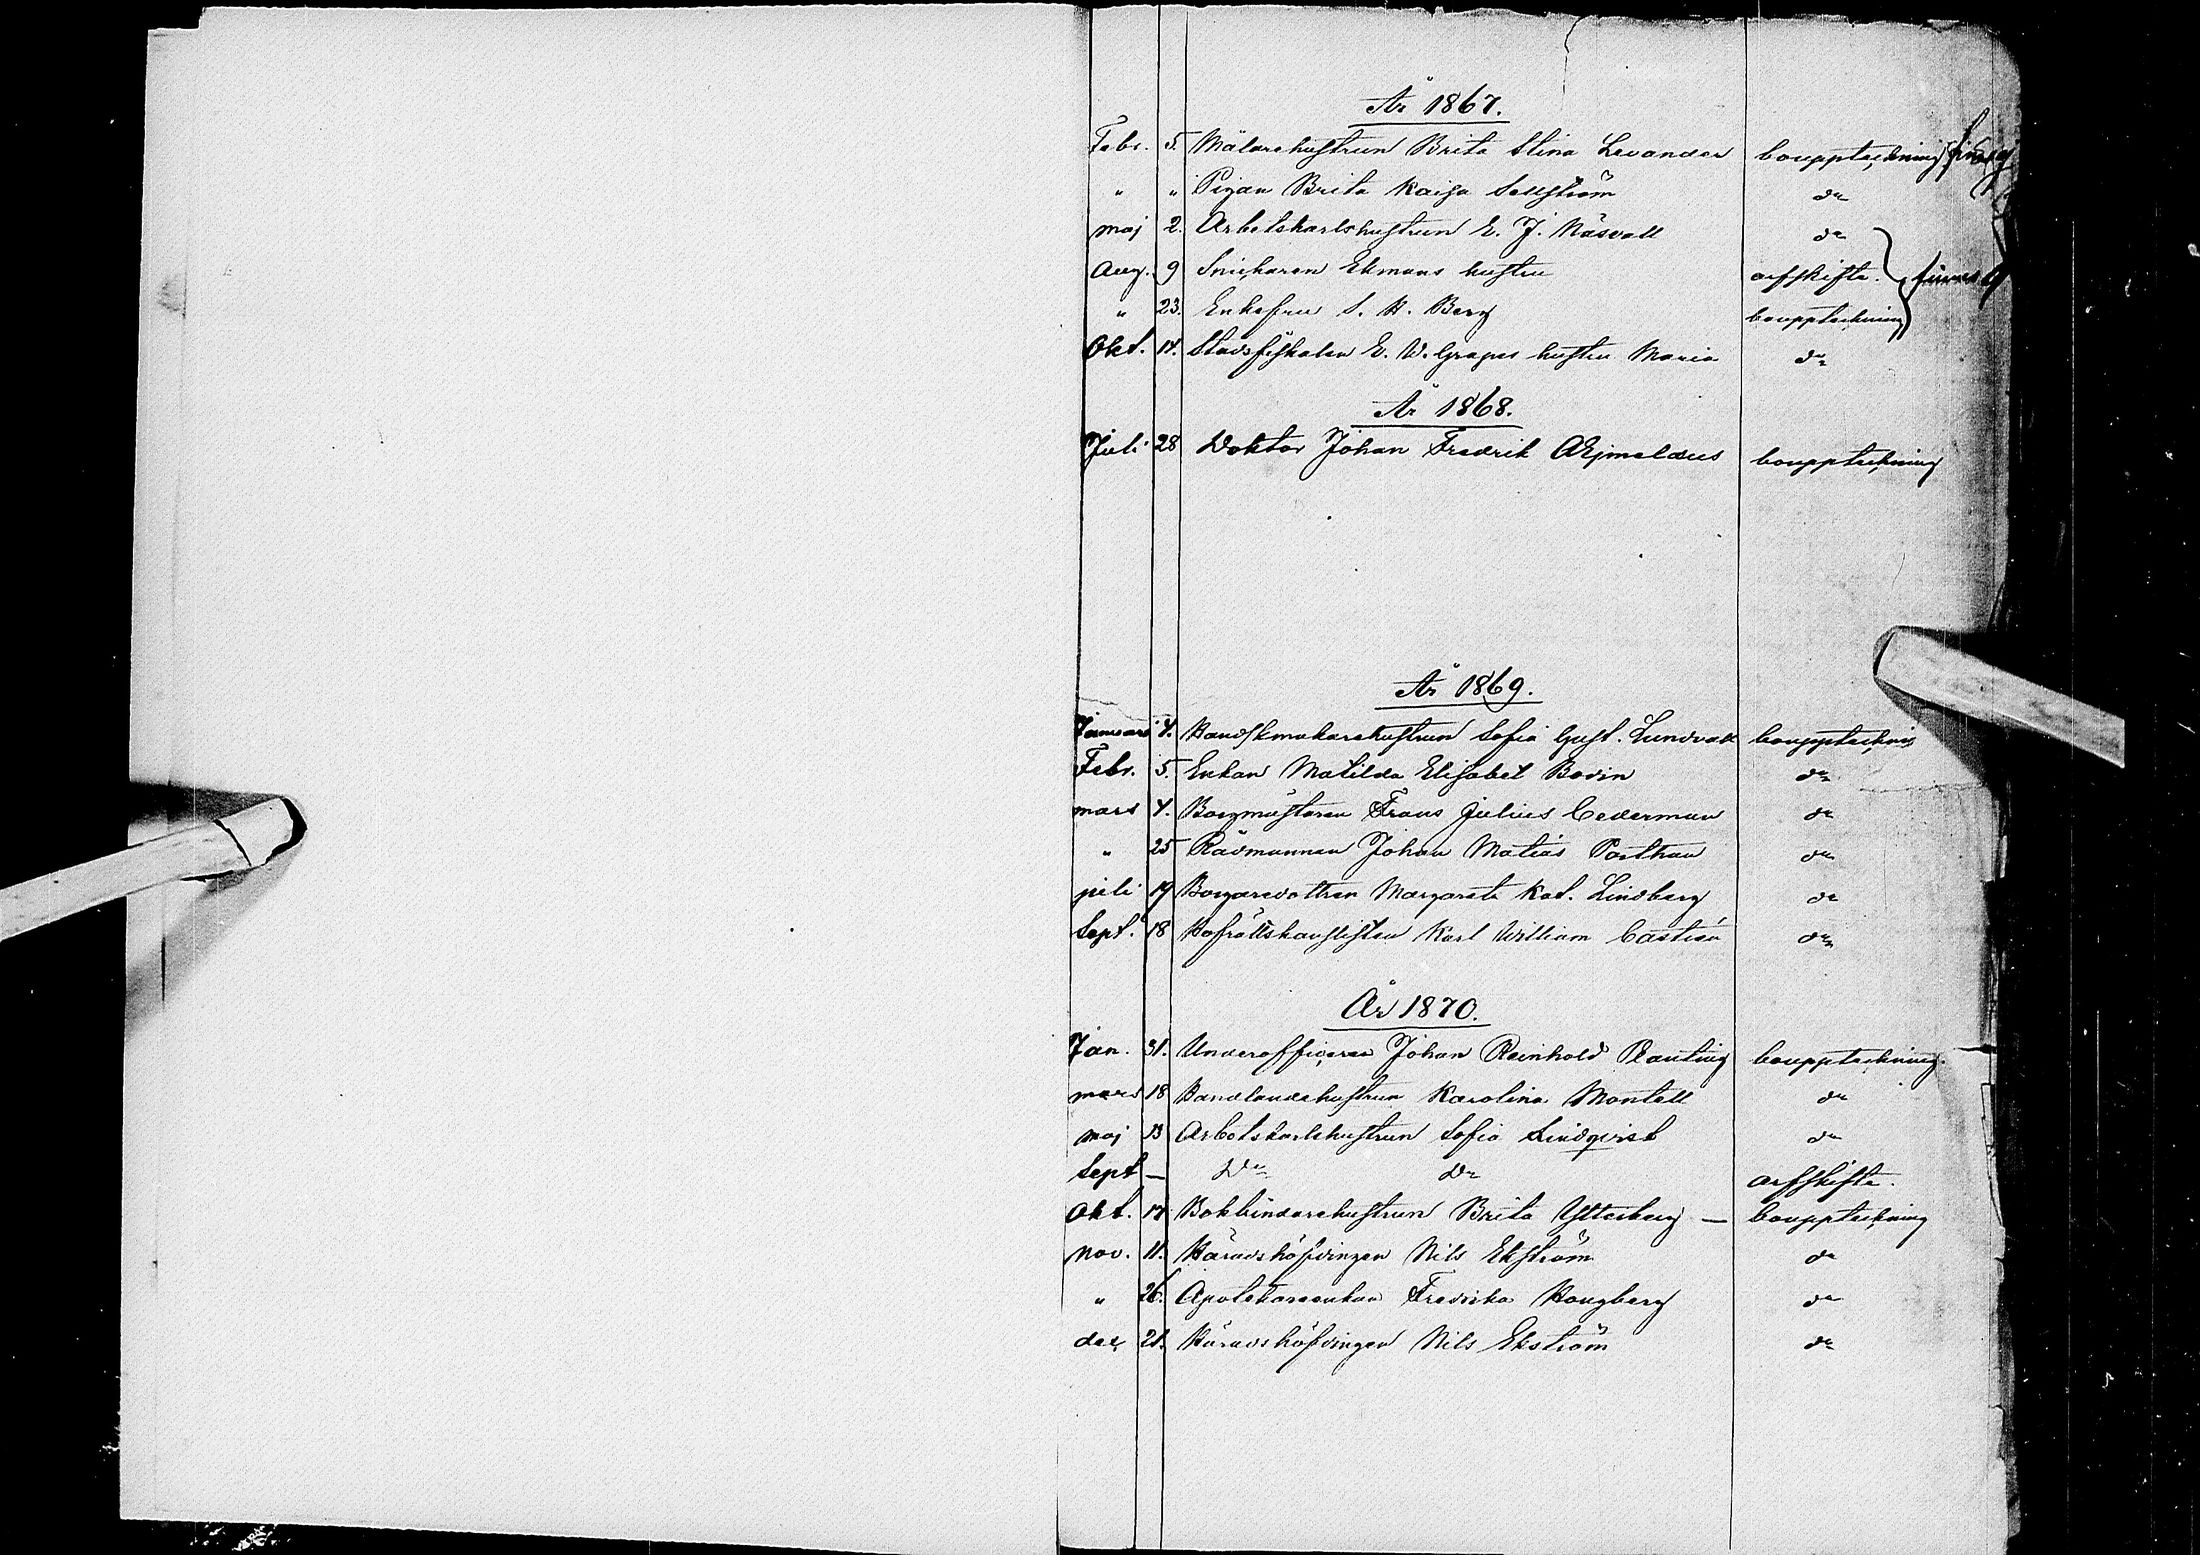 År 1867.
Febr. 5. Målarehustrun Brita Stina Levander bouppteckning finnes ej
" " Pigan Brita Kaisa Sellström d:o
maj 2. Arbetskarlshustrun E. J. Näsvall d:o
Aug. 9 Snickaren Ekmans hustru arfskifte. finnes ej
" 23. Enkefru S. H. Berg bouppteckning
Okt. 14. Stadsfiskalen E. W. Grapes hustru Maria d:o
År 1868.
Juli 28 Doktor Johan Fredrik Æjmelæus bouppteckning
År 1869.
Januari 4. Handskmakarehustrun Sofia Gust. Lundvall bouppteckning
Febr. 5. Enkan Matilda Elisabet Bodin d:o
mars 4. Borgmästaren Frans Julius Cederman d:o
" 25 Rådmannen Johan Matias Porthan d:o
juli 19 Borgaredottren Margareta Kat. Lindberg d:o
Sept. 18 Hofrättskanslisten Karl William Castrén d:o
År 1870.
Jan. 31. Underofficeren Johan Reinhold Planting bouppteckning.
mars 18 Handlandehustrun Karolina Montell d:o
maj 13 Arbetskarlshustrun Sofia Lindqvist d:o
Sept — D:o D:o arfskifte.
Okt. 14 Bokbindarehustrun Brita Ytterberg — bouppteckning
nov. 11. Häradshöfdingen Nils Ekström d:o
" 26. Apotekareenkan Fredrika Hougberg d:o
dec. 21. Häradshöfdingen Nils Ekström d:o